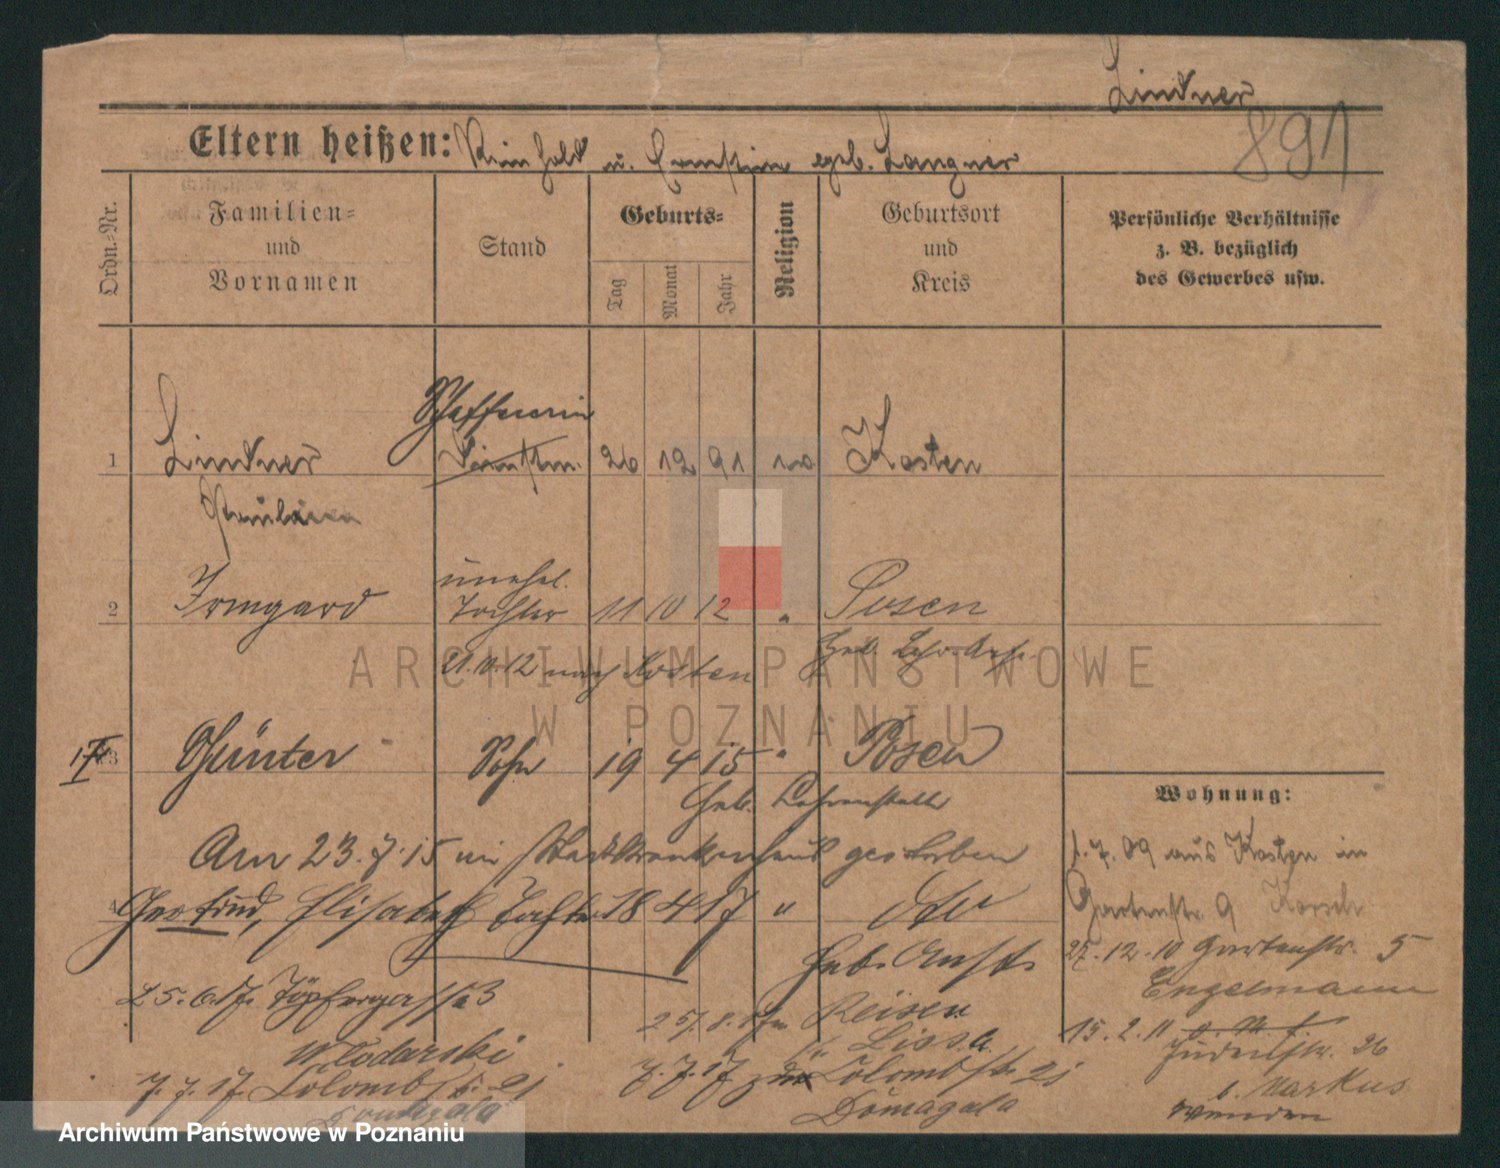 Lindner
891
Eltern heißen: Reinhold u. Ernstine geb. Langner
Ordn.-Nr.
Familien-
und
Vornamen
Stand
Geburts-
Tag
Monat
Jahr
Religion
Geburtsort
und
Kreis
Persönliche Verhältnisse
z. B. bezüglich
des Gewerbes usw.
Schaffnerin
1 Lindner 26 12 91 Kosten
Pauline
unehel.
2 Irmgard Tochter 11 10 12 " Posen
Geb.
21.10.12 nach Kosten
3 Günter Sohn 19 4 15 " Posen
Geb. Lehranstalt
Wohnung:
Am 23.7.15 im Stadtkrankenhaus gestorben
1.7.09 aus Kosten in
4 Gertrud, Elisabeth Tochter 18 4 17 "
Gartenstr. 9
Geb. Anst.
27.12.10 Gartenstr. 5
Engelmann
25.6.17. Töpfergasse 3
Reisen
15.2.11
Lissa
Judenstr. 26
Wlodarski
7.7.17 Colombstr. 21
7.7.17 Colombstr. 21
b. Markus
Domagala
Domagala
wenden
ARCHIWUM PAŃSTWOWE
W POZNANIU
Archiwum Państwowe w Poznaniu